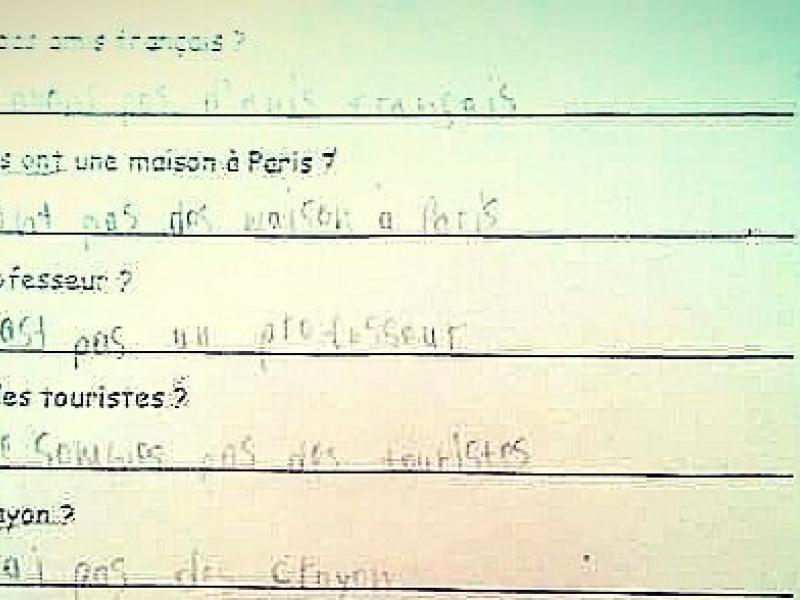 des amis français ?
avons pas d'amis français
s ont une maison à Paris ?
ont pas des maison a Paris
ofesseur ?
est pas un professeur
des touristes ?
sommes pas des touristes
ayon ?
ai pas des crayon